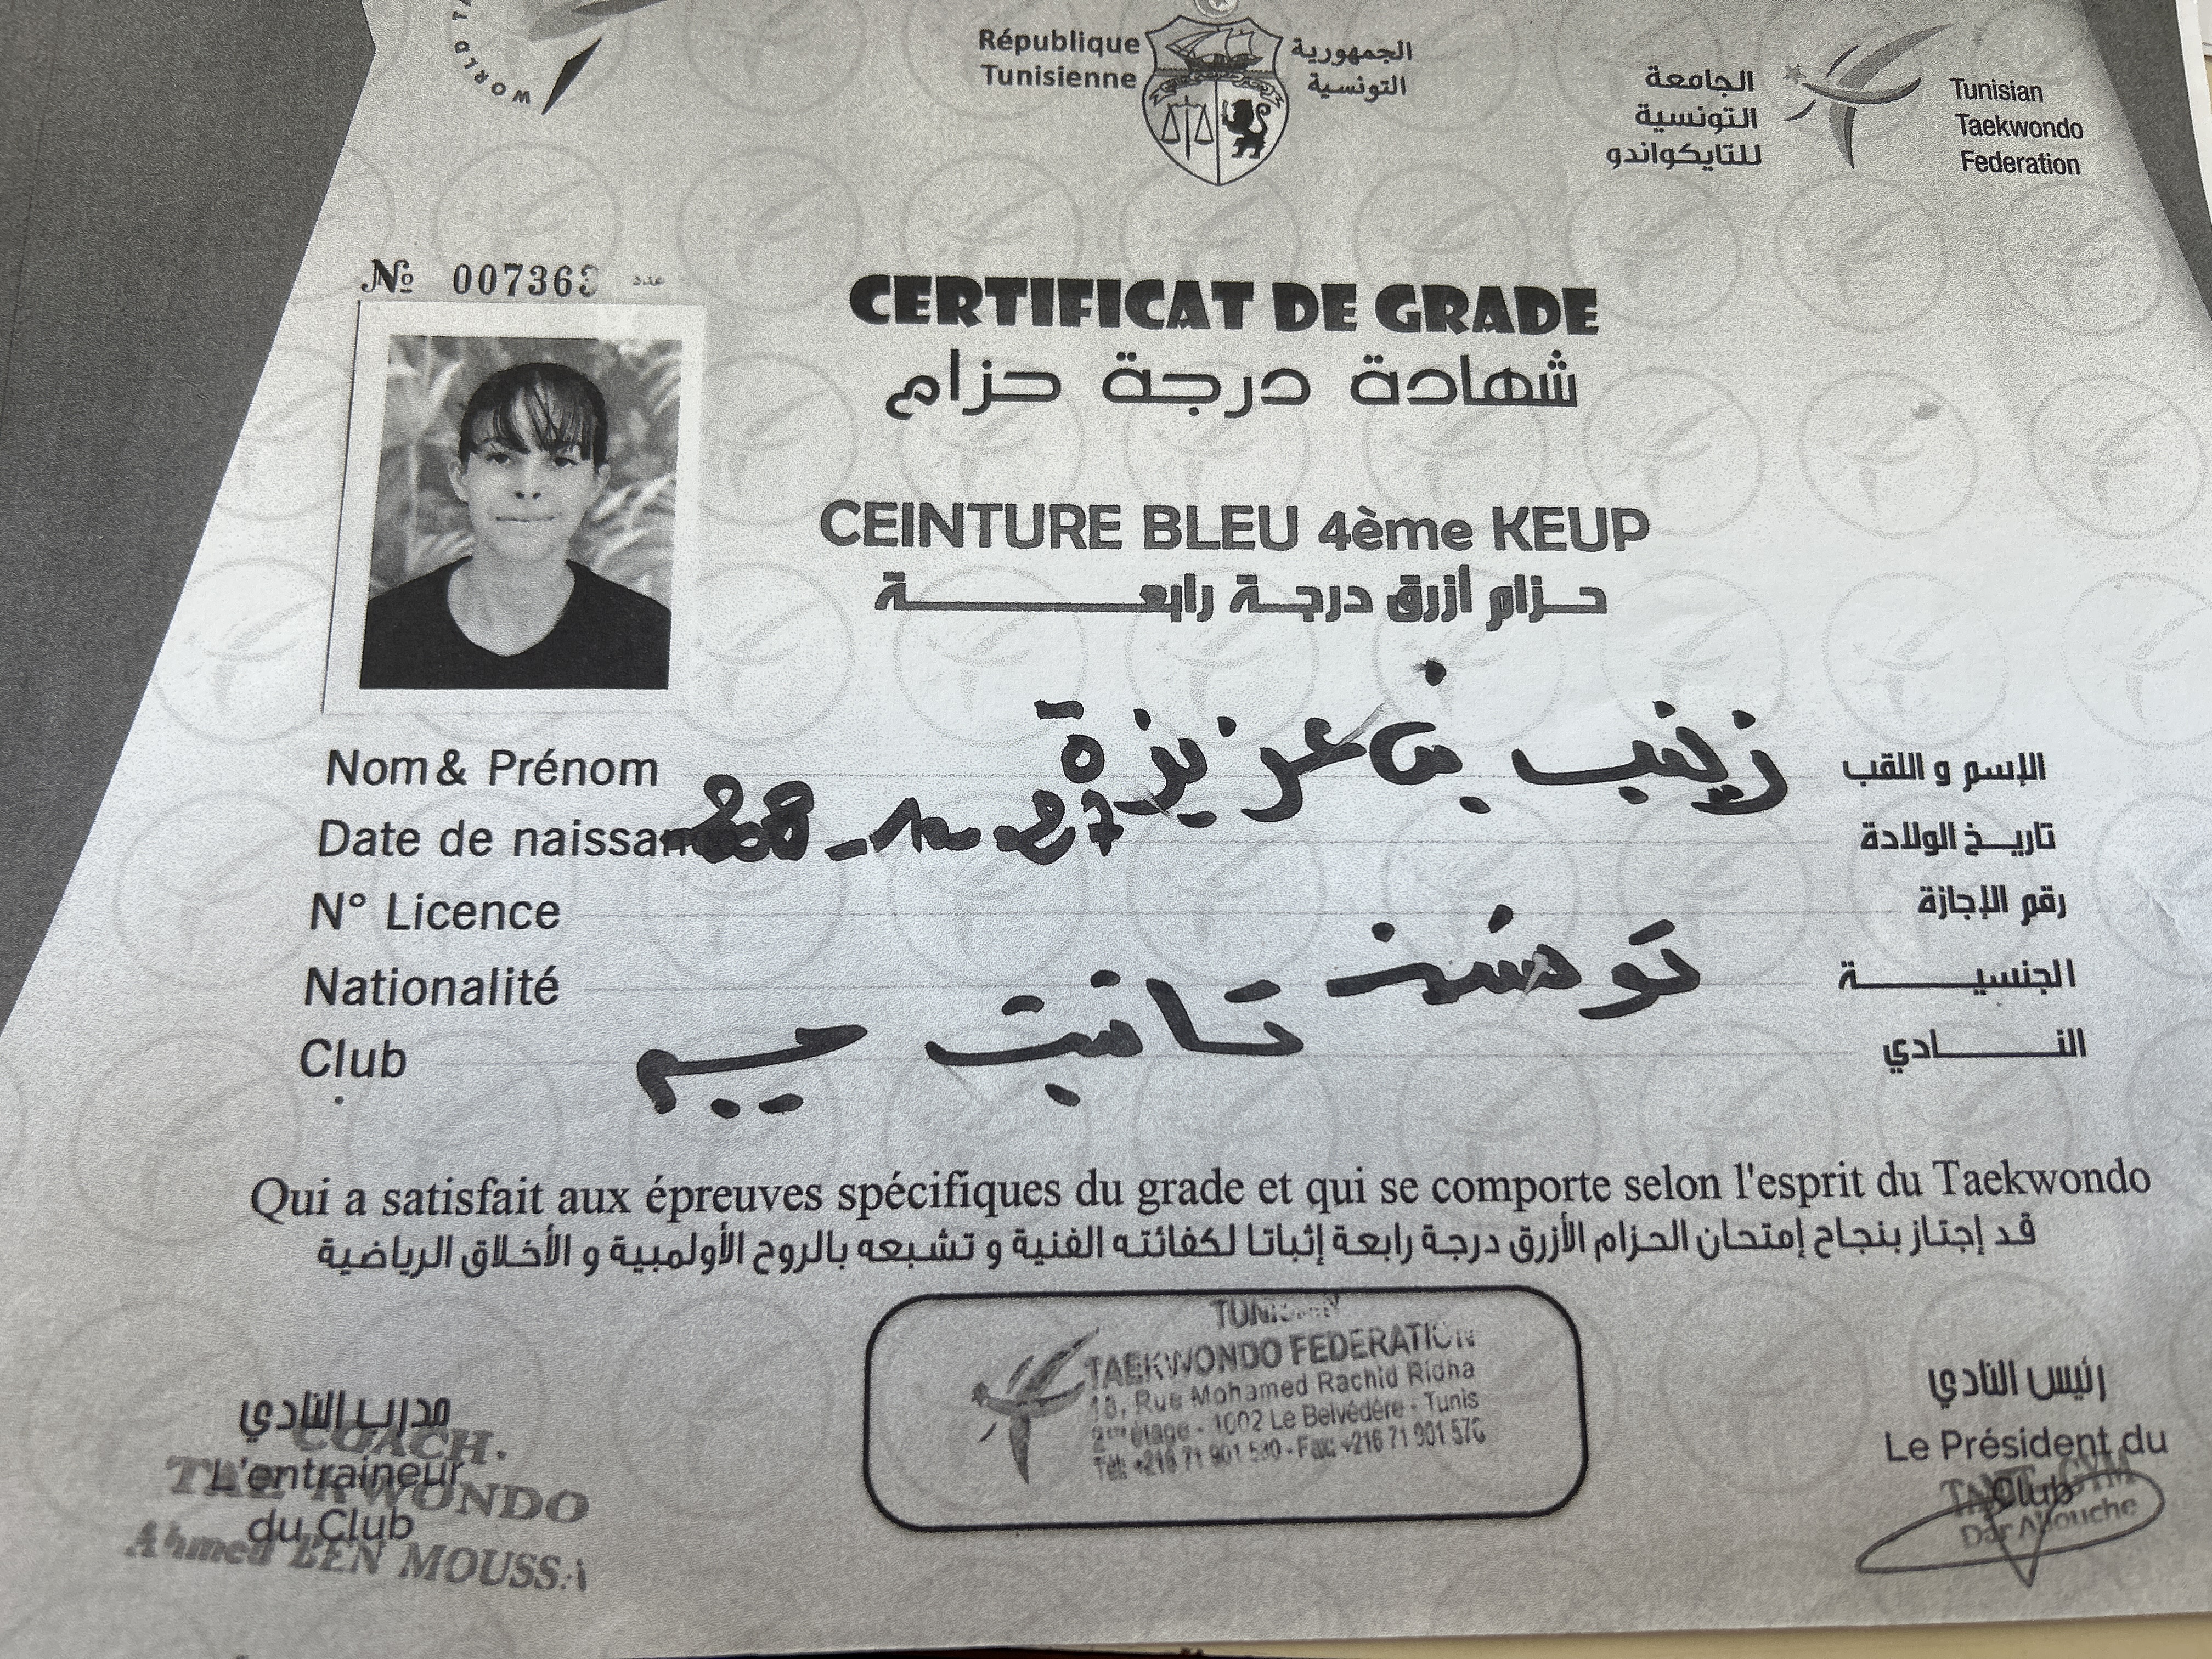 WORLD TA
République
Tunisienne
الجمهورية
التونسية
الجامعة
التونسية
للتايكواندو
Tunisian
Taekwondo
Federation
№ 007363 عدد
CERTIFICAT DE GRADE
شهادة درجة حزام
CEINTURE BLEU 4ème KEUP
حزام أزرق درجة رابعة
Nom & Prénom زينب بن عزيزة الإسم و اللقب
Date de naissan تاريخ الولادة
N° Licence رقم الإجازة
Nationalité تونسية الجنسية
Club تانيت جيم النادي
Qui a satisfait aux épreuves spécifiques du grade et qui se comporte selon l'esprit du Taekwondo
قد إجتاز بنجاح إمتحان الحزام الأزرق درجة رابعة إثباتا لكفائته الفنية و تشبعه بالروح الأولمبية و الأخلاق الرياضية
TAEKWONDO FEDERATION
Rue Mohamed Rachid Ridha
2ème étage - 1002 Le Belvédère - Tunis
Tél: +216 71 901 580 - Fax: +216 71 901 576
مدرب النادي
L'entraineur
du Club
COACH.
TAEKWONDO
Ahmed BEN MOUSSA
رئيس النادي
Le Président du
Club
GYM
Dar Allouche